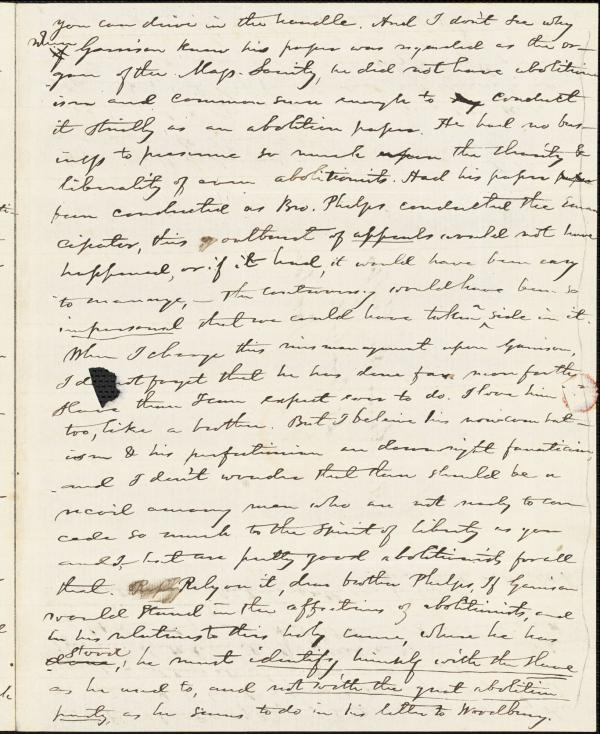 you can drive in the handle. And I don't see why
when Garrison knew his paper was regarded as the or-
gan of the Mass. Society, he did not have abolition
ism and common sense enough to conduct
it strictly as an abolition paper. He had no bus-
iness to presume so much upon the charity &
liberality of even abolitionists. Had his paper
been conducted as Bro. Phelps conducted the Eman
cipator, this outburst of appeals would not have
happened, or if it had, it would have been easy
to manage, — The controversy would have been so
impersonal that we could have taken ^ side in it.
When I charge this mismanagement upon Garrison,
I do not forget that he has done far more for the
slave than I can expect ever to do. I love him
too, like a brother. But I believe his noncombat-
ism & his perfectionism are downright fanaticism,
and I don't wonder that there should be a
recoil among men who are not ready to con
cede so much to the spirit of liberty as you
and I, but are pretty good abolitionists for all
that. Rely on it, dear brother Phelps, If Garrison
would stand in the affections of abolitionists, and
in his relations to this holy cause, where he has
stood, he must identify himself with the slave
as he used to, and not with the great abolition
party, as he seems to do in his letter to Woodbury.